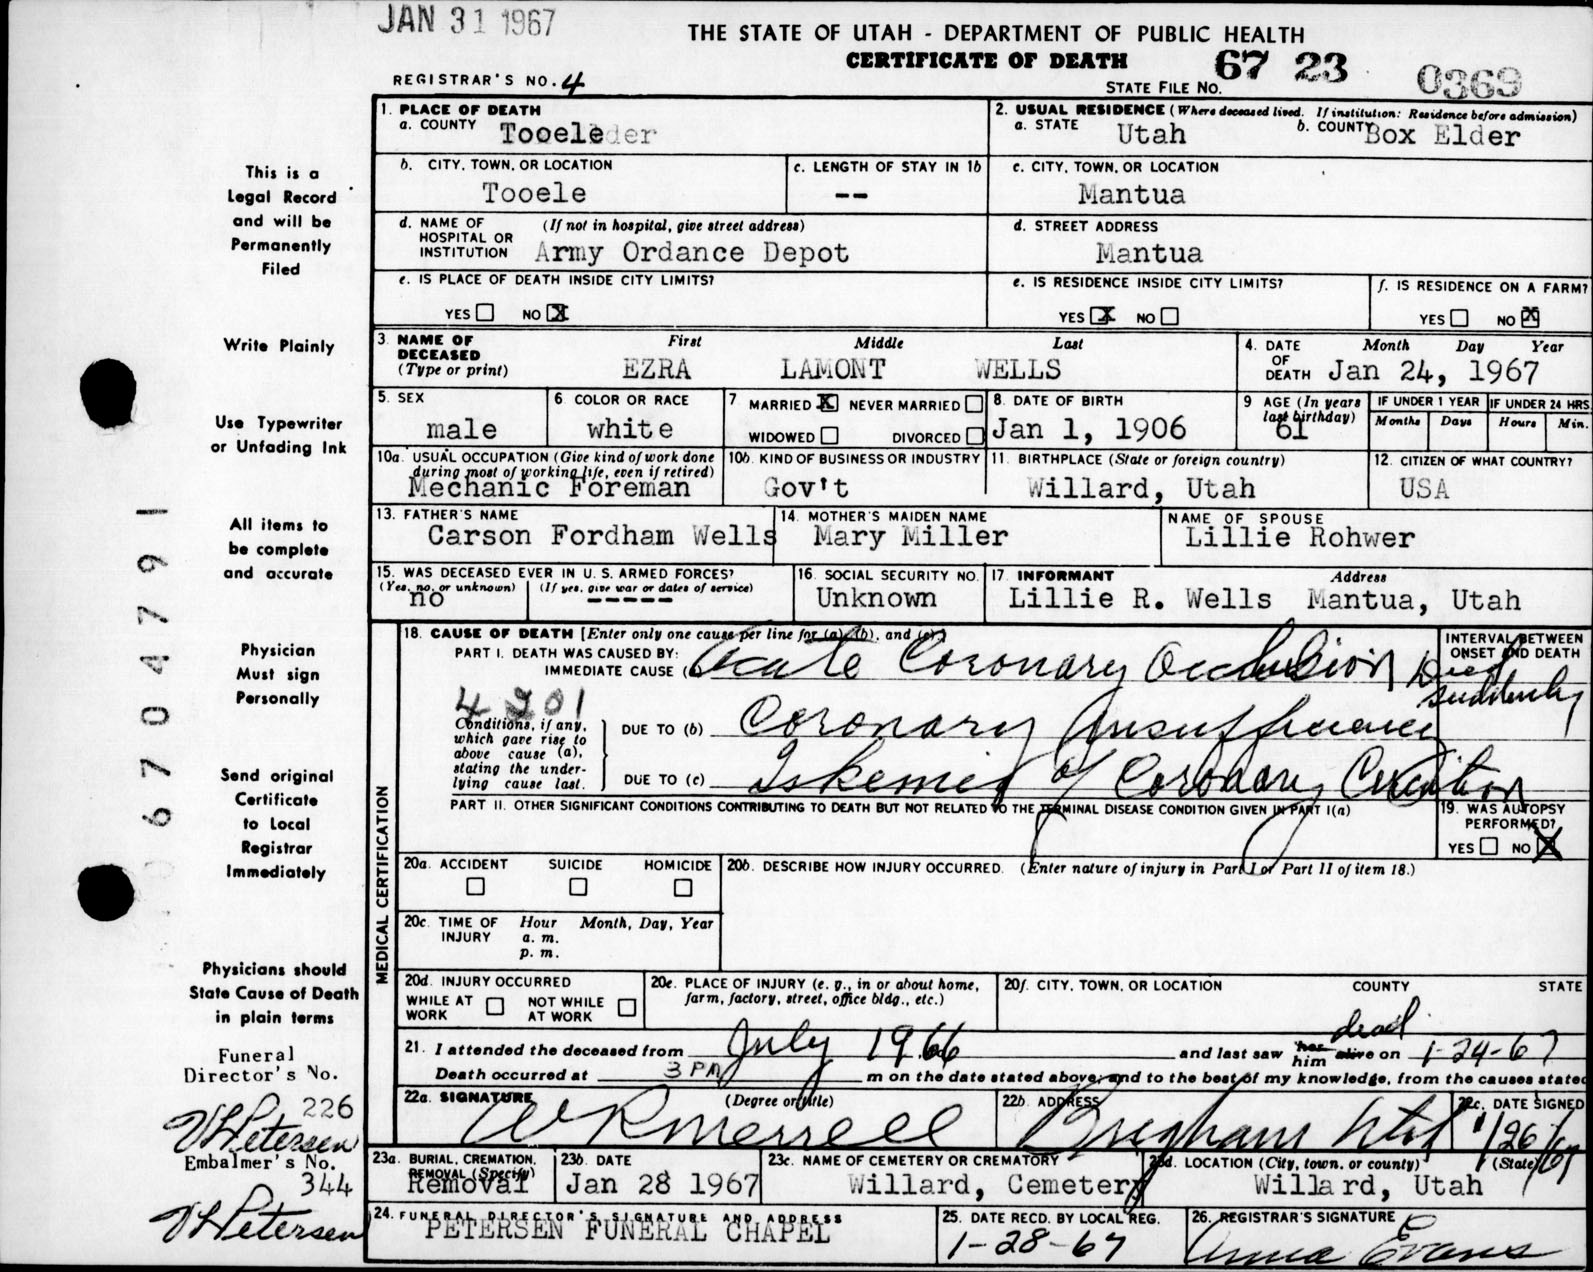 JAN 31 1967
THE STATE OF UTAH - DEPARTMENT OF PUBLIC HEALTH
CERTIFICATE OF DEATH
67 23 0369
REGISTRAR'S NO. 4
STATE FILE NO.
1. PLACE OF DEATH
a. COUNTY Tooele
2. USUAL RESIDENCE (Where deceased lived. If institution: Residence before admission)
a. STATE Utah b. COUNTY Box Elder
b. CITY, TOWN, OR LOCATION Tooele
c. LENGTH OF STAY IN 1b --
c. CITY, TOWN, OR LOCATION Mantua
d. NAME OF HOSPITAL OR INSTITUTION (If not in hospital, give street address) Army Ordance Depot
d. STREET ADDRESS Mantua
e. IS PLACE OF DEATH INSIDE CITY LIMITS?
YES NO X
e. IS RESIDENCE INSIDE CITY LIMITS?
YES X NO
f. IS RESIDENCE ON A FARM?
YES NO X
3. NAME OF DECEASED (Type or print) First Middle Last
EZRA LAMONT WELLS
4. DATE OF DEATH Month Day Year
Jan 24, 1967
5. SEX male
6. COLOR OR RACE white
7. MARRIED X NEVER MARRIED
WIDOWED DIVORCED
8. DATE OF BIRTH Jan 1, 1906
9. AGE (In years last birthday) 61
IF UNDER 1 YEAR Months Days
IF UNDER 24 HRS. Hours Min.
10a. USUAL OCCUPATION (Give kind of work done during most of working life, even if retired) Mechanic Foreman
10b. KIND OF BUSINESS OR INDUSTRY Gov't
11. BIRTHPLACE (State or foreign country) Willard, Utah
12. CITIZEN OF WHAT COUNTRY? USA
13. FATHER'S NAME Carson Fordham Wells
14. MOTHER'S MAIDEN NAME Mary Miller
NAME OF SPOUSE Lillie Rohwer
15. WAS DECEASED EVER IN U.S. ARMED FORCES?
(Yes, no, or unknown) no (If yes, give war or dates of service) -----
16. SOCIAL SECURITY NO. Unknown
17. INFORMANT Address
Lillie R. Wells Mantua, Utah
MEDICAL CERTIFICATION
18. CAUSE OF DEATH [Enter only one cause per line for (a), (b), and (c).]
INTERVAL BETWEEN ONSET AND DEATH
PART I. DEATH WAS CAUSED BY:
IMMEDIATE CAUSE (a) Acute Coronary Occlusion Died suddenly
4201
Conditions, if any, which gave rise to above cause (a), stating the underlying cause last.
DUE TO (b) Coronary Insufficiency
DUE TO (c) Iskemia of Coronary
PART II. OTHER SIGNIFICANT CONDITIONS CONTRIBUTING TO DEATH BUT NOT RELATED TO THE TERMINAL DISEASE CONDITION GIVEN IN PART I(a)
19. WAS AUTOPSY PERFORMED?
YES NO X
20a. ACCIDENT SUICIDE HOMICIDE
20b. DESCRIBE HOW INJURY OCCURRED. (Enter nature of injury in Part I or Part II of item 18.)
20c. TIME OF INJURY Hour Month, Day, Year
a. m.
p. m.
20d. INJURY OCCURRED
WHILE AT WORK NOT WHILE AT WORK
20e. PLACE OF INJURY (e. g., in or about home, farm, factory, street, office bldg., etc.)
20f. CITY, TOWN, OR LOCATION COUNTY STATE
dead
21. I attended the deceased from July 1966 and last saw her him alive on 1-24-67
Death occurred at 3 PM m on the date stated above; and to the best of my knowledge, from the causes stated
22a. SIGNATURE (Degree or title) W R Merrell
22b. ADDRESS Brigham Utah
22c. DATE SIGNED 1/26/67
23a. BURIAL, CREMATION, REMOVAL (Specify) Removal
23b. DATE Jan 28 1967
23c. NAME OF CEMETERY OR CREMATORY Willard, Cemetery
23d. LOCATION (City, town, or county) (State) Willard, Utah
24. FUNERAL DIRECTOR'S SIGNATURE AND ADDRESS
PETERSEN FUNERAL CHAPEL
25. DATE RECD. BY LOCAL REG. 1-28-67
26. REGISTRAR'S SIGNATURE Anna Evans
This is a
Legal Record
and will be
Permanently
Filed
Write Plainly
Use Typewriter
or Unfading Ink
All items to
be complete
and accurate
Physician
Must sign
Personally
Send original
Certificate
to Local
Registrar
Immediately
Physicians should
State Cause of Death
in plain terms
Funeral
Director's No.
226
V L Petersen
Embalmer's No.
344
V L Petersen
6704791